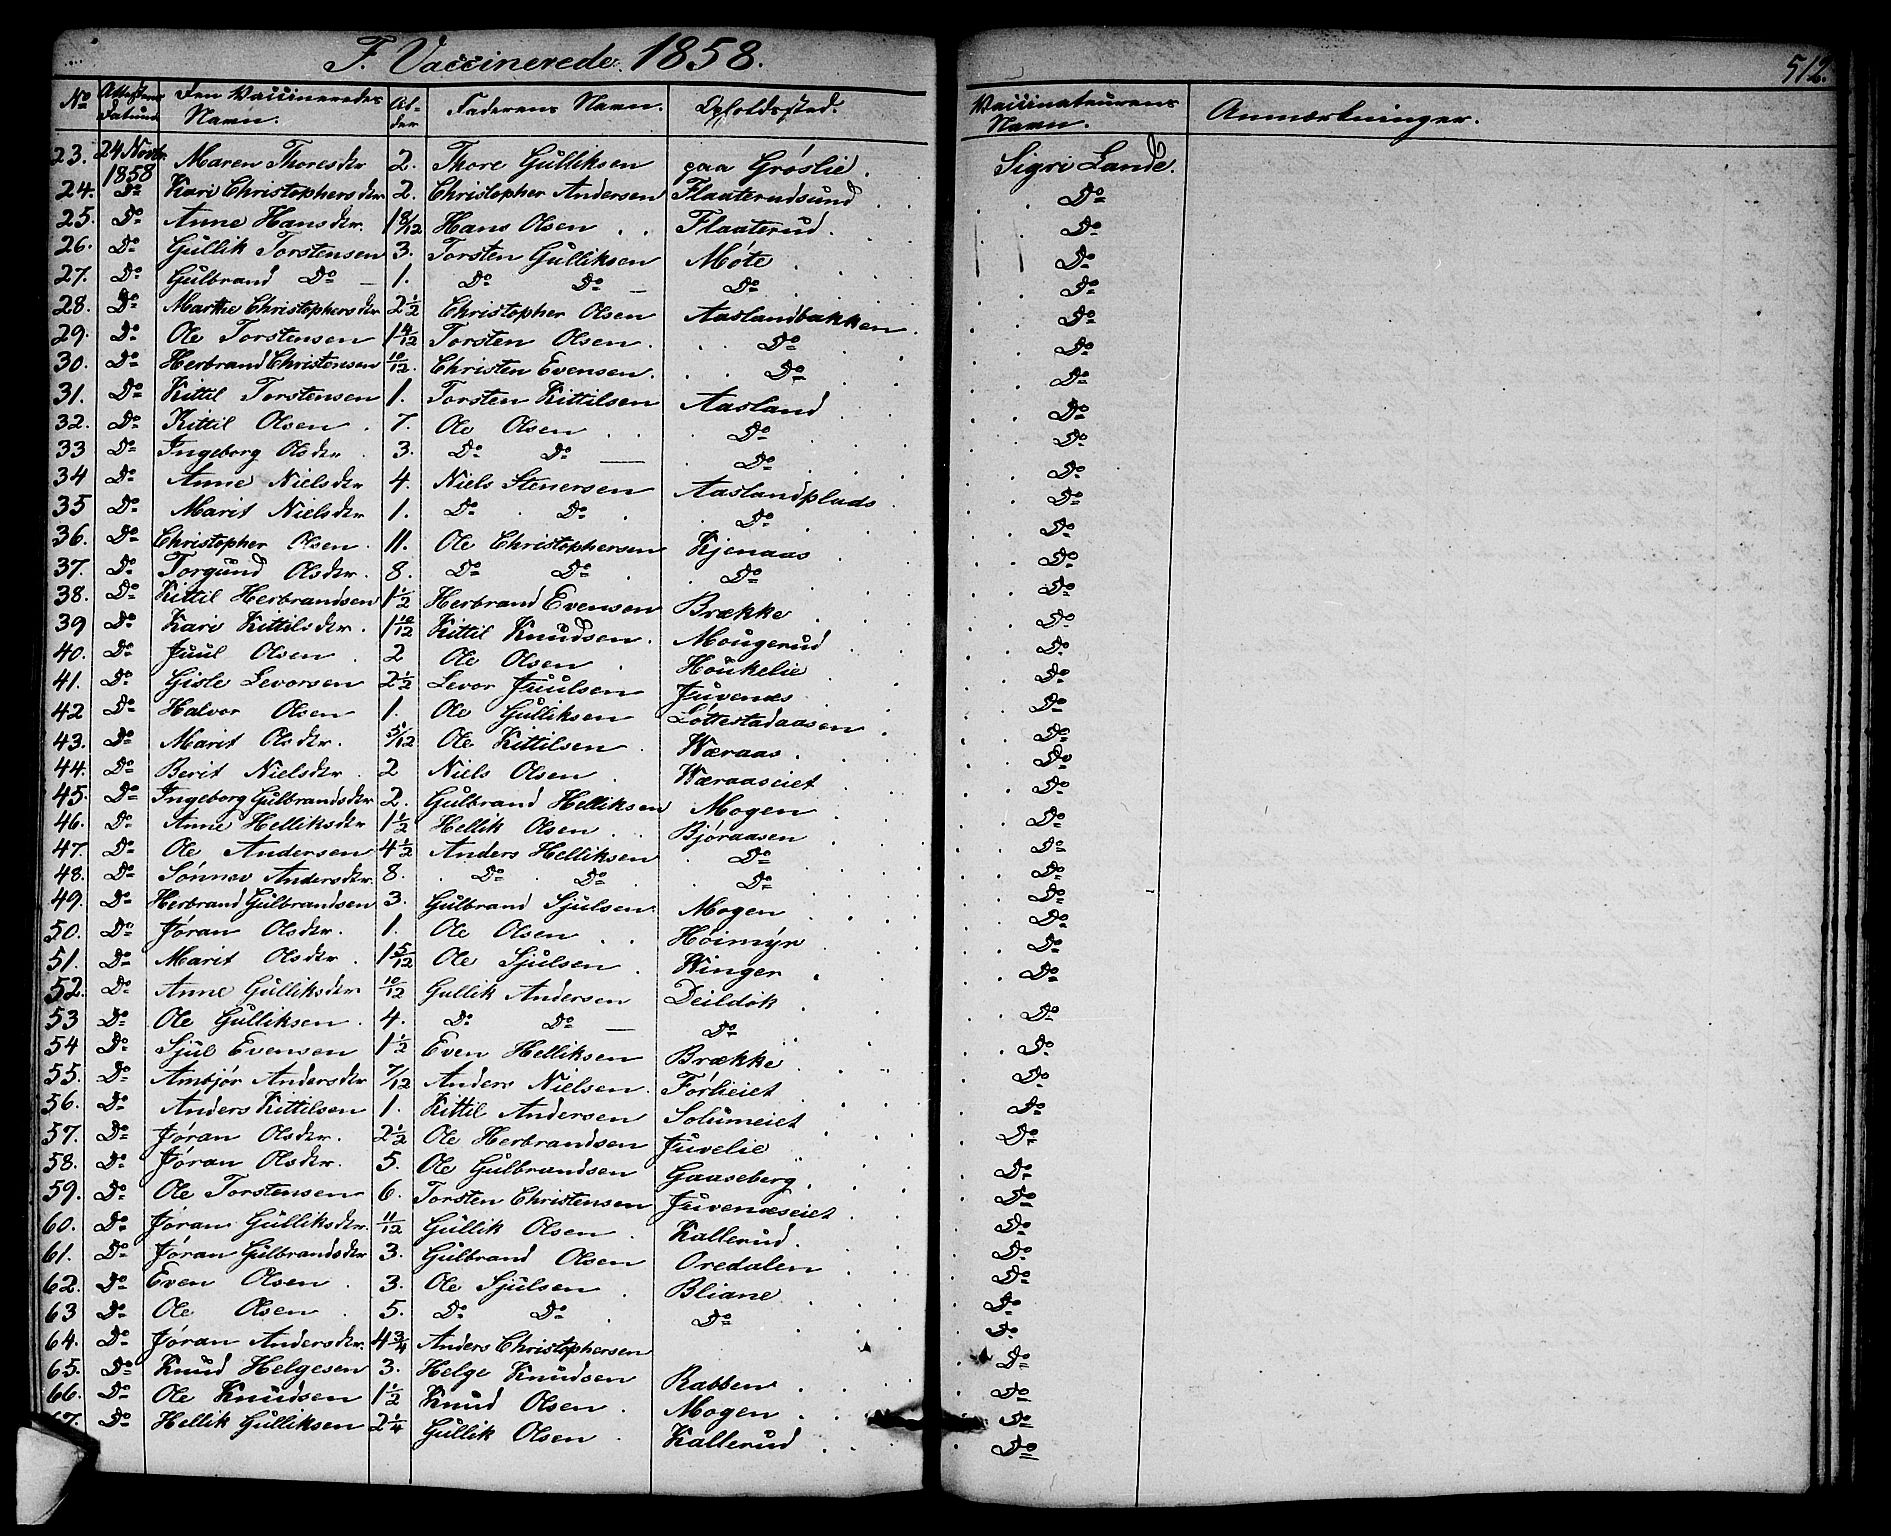 F. Vaccinerede 1858.
512.
No Attestens Datum Den Vaccineredes Navn. Alder Faderens Navn. Opholdssted. Vaccinateurens Navn. Anmærkninger.
23. 24 Novbr. 1858 Maren Thoresdtr 2. Thore Gulliksen paa Grøslie. Sigri Lande.
24. Do Kari Christophersdtr 2. Christopher Andersen Flaaterudsund Do
25. Do Anne Hansdtr. 1 8/12 Hans Olsen Flaaterud. Do
26. Do Gullik Torstensen 3. Torsten Gulliksen Møte Do
27. Do Gulbrand Do — 1. Do Do — Do Do
28. Do Marthe Christophersdtr 2 1/2 Christopher Olsen Aaslandbakken. Do
29. Do Ole Torstensen 1 4/12 Torsten Olsen. Do Do
30. Do Herbrand Christensen 10/12. Christen Evensen. Do Do
31. Do Kittil Torstensen 1. Torsten Kittilsen Aasland Do
32. Do Kittil Olsen 7. Ole Olsen Do Do
33 Do Ingeborg Olsdtr 3. Do Do — Do Do
34 Do Anne Nielsdtr 4. Niels Stenersen Aaslandplads Do
35 Do Marit Nielsdtr 1. Do Do Do Do
36. Do Christopher Olsen 11. Ole Christophersen Kjenaas Do
37. Do Torgund Olsdtr. 8. Do Do Do Do
38. Do Kittil Herbrandsen 1 1/2 Herbrand Evensen Brække Do
39 Do Kari Kittilsdtr. 1 10/12 Kittil Knudsen. Mougerud Do
40. Do Juul Olsen 2 Ole Olsen Houkelie Do
41. Do Gisle Levorsen 2 1/2 Levor Juulsen Juvenæs Do
42 Do Halvor Olsen 1. Ole Gulliksen Lottestadaasen Do
43. Do Marit Olsdtr. 5/12 Ole Kittilsen Væraas. Do
44. Do Berit Nielsdtr 2 Niels Olsen Væraaseiet Do
45. Do Ingeborg Gulbrandsdtr 2. Gulbrand Helliksen Mogen Do
46. Do Anne Helliksdtr 1 1/2 Hellik Olsen Bjøraasen Do
47. Do Ole Andersen 4 1/2 Anders Helliksen Do Do
48. Do Sønnev Andersdtr. 8. Do Do Do Do
49. Do Herbrand Gulbrandsen 3. Gulbrand Sjulsen Mogen Do
50. Do Jøran Olsdtr. 1. Ole Olsen Høimyr Do
51. Do Marit Olsdtr 1 5/12 Ole Sjulsen Winger Do
52. Do Anne Gulliksdtr 10/12 Gullik Andersen Deildok Do
53 Do Ole Gulliksen 4. Do Do — Do Do
54 Do Sjul Evensen 1 1/2 Even Helliksen Brække Do
55. Do Ambjør Andersdtr 7/12 Anders Nielsen Førlieiet Do
56. Do Anders Kittilsen 1. Kittil Andersen Solumeiet Do
57. Do Jøran Olsdtr. 2 1/2 Ole Herbrandsen Juvelie Do
58. Do Jøran Olsdtr. 5. Ole Gulbrandsen Gaaseberg Do
59. Do Ole Torstensen 6. Torsten Christensen Juvenæseiet Do
60. Do Jøran Gulliksdtr. 11/12 Gullik Olsen Kallerud. Do
61. Do Jøran Gulbrandsdtr 3. Gulbrand Olsen Oredalen Do
62. Do Even Olsen 3. Ole Sjulsen Bliane Do
63 Do Ole Olsen 5. Do Do Do Do
64. Do Jøran Andersdtr. 4 3/4 Anders Christophersen Do
65. Do Knud Helgesen 3. Helge Knudsen Rabben Do
66. Do Ole Knudsen 1 1/2 Knud Olsen Mogen Do
67. Do Hellik Gulliksen 2 1/4 Gullik Olsen Kallerud Do